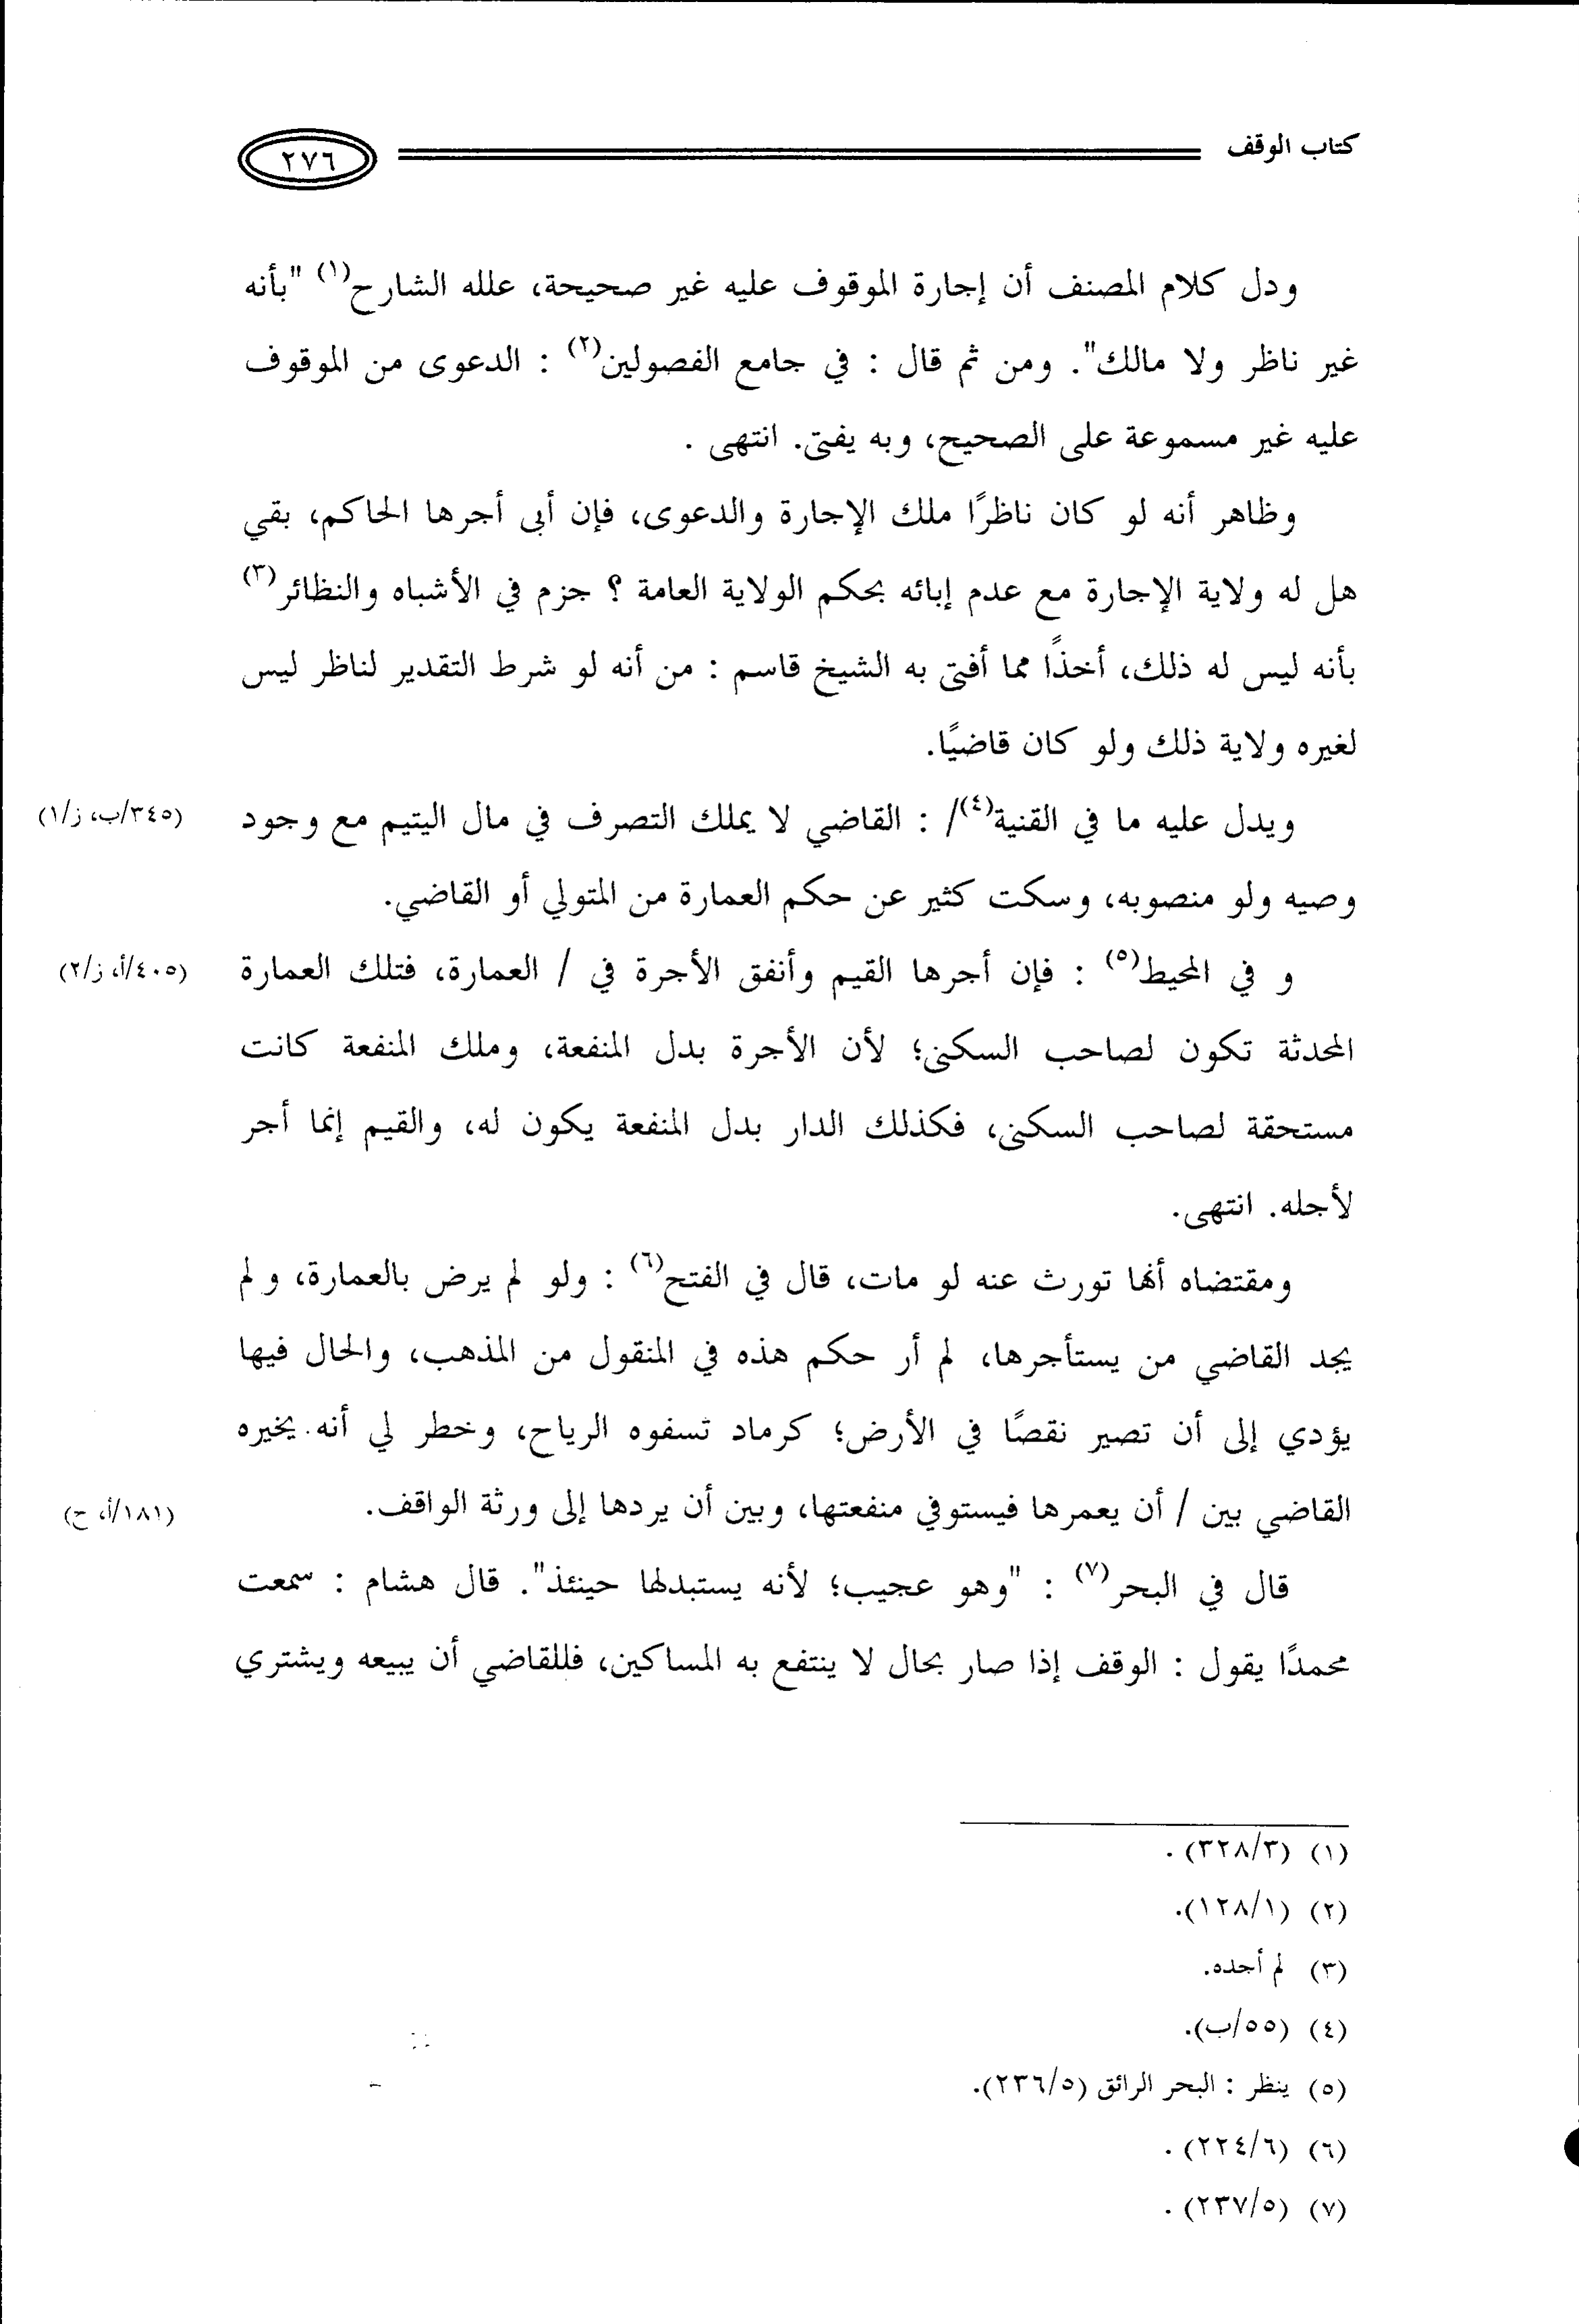 كتاب الوقف ٢٧٦
ودل كلام المصنف أن إجارة الموقوف عليه غير صحيحة، علله الشارح(١) "بأنه
غير ناظر ولا مالك". ومن ثم قال : في جامع الفصولين(٢) : الدعوى من الموقوف
عليه غير مسموعة على الصحيح، وبه يفتى. انتهى .
وظاهر أنه لو كان ناظرًا ملك الإجارة والدعوى، فإن أبى أجرها الحاكم، بقي
هل له ولاية الإجارة مع عدم إبائه بحكم الولاية العامة ؟ جزم في الأشباه والنظائر(٣)
بأنه ليس له ذلك، أخذًا مما أفتى به الشيخ قاسم : من أنه لو شرط التقدير لناظر ليس
لغيره ولاية ذلك ولو كان قاضيًا.
ويدل عليه ما في القنية(٤)/ : القاضي لا يملك التصرف في مال اليتيم مع وجود (٣٤٥/ب، ز/١)
وصيه ولو منصوبه، وسكت كثير عن حكم العمارة من المتولي أو القاضي.
و في المحيط(٥) : فإن أجرها القيم وأنفق الأجرة في / العمارة، فتلك العمارة (٤٠٥/أ، ز/٢)
المحدثة تكون لصاحب السكنى؛ لأن الأجرة بدل المنفعة، وملك المنفعة كانت
مستحقة لصاحب السكنى، فكذلك الدار بدل المنفعة يكون له، والقيم إنما أجر
لأجله. انتهى.
ومقتضاه أنها تورث عنه لو مات، قال في الفتح(٦) : ولو لم يرض بالعمارة، ولم
يجد القاضي من يستأجرها، لم أر حكم هذه في المنقول من المذهب، والحال فيها
يؤدي إلى أن تصير نقصًا في الأرض؛ كرماد تسفوه الرياح، وخطر لي أنه يخيره
القاضي بين / أن يعمرها فيستوفي منفعتها، وبين أن يردها إلى ورثة الواقف. (١٨١/أ، ح)
قال في البحر(٧) : "وهو عجيب؛ لأنه يستبدلها حينئذ". قال هشام : سمعت
محمدًا يقول : الوقف إذا صار بحال لا ينتفع به المساكين، فللقاضي أن يبيعه ويشتري
(١) (٣٢٨/٣) .
(٢) (١٢٨/١).
(٣) لم أجده.
(٤) (٥٥/ب).
(٥) ينظر : البحر الرائق (٢٣٦/٥).
(٦) (٢٢٤/٦) .
(٧) (٢٣٧/٥) .